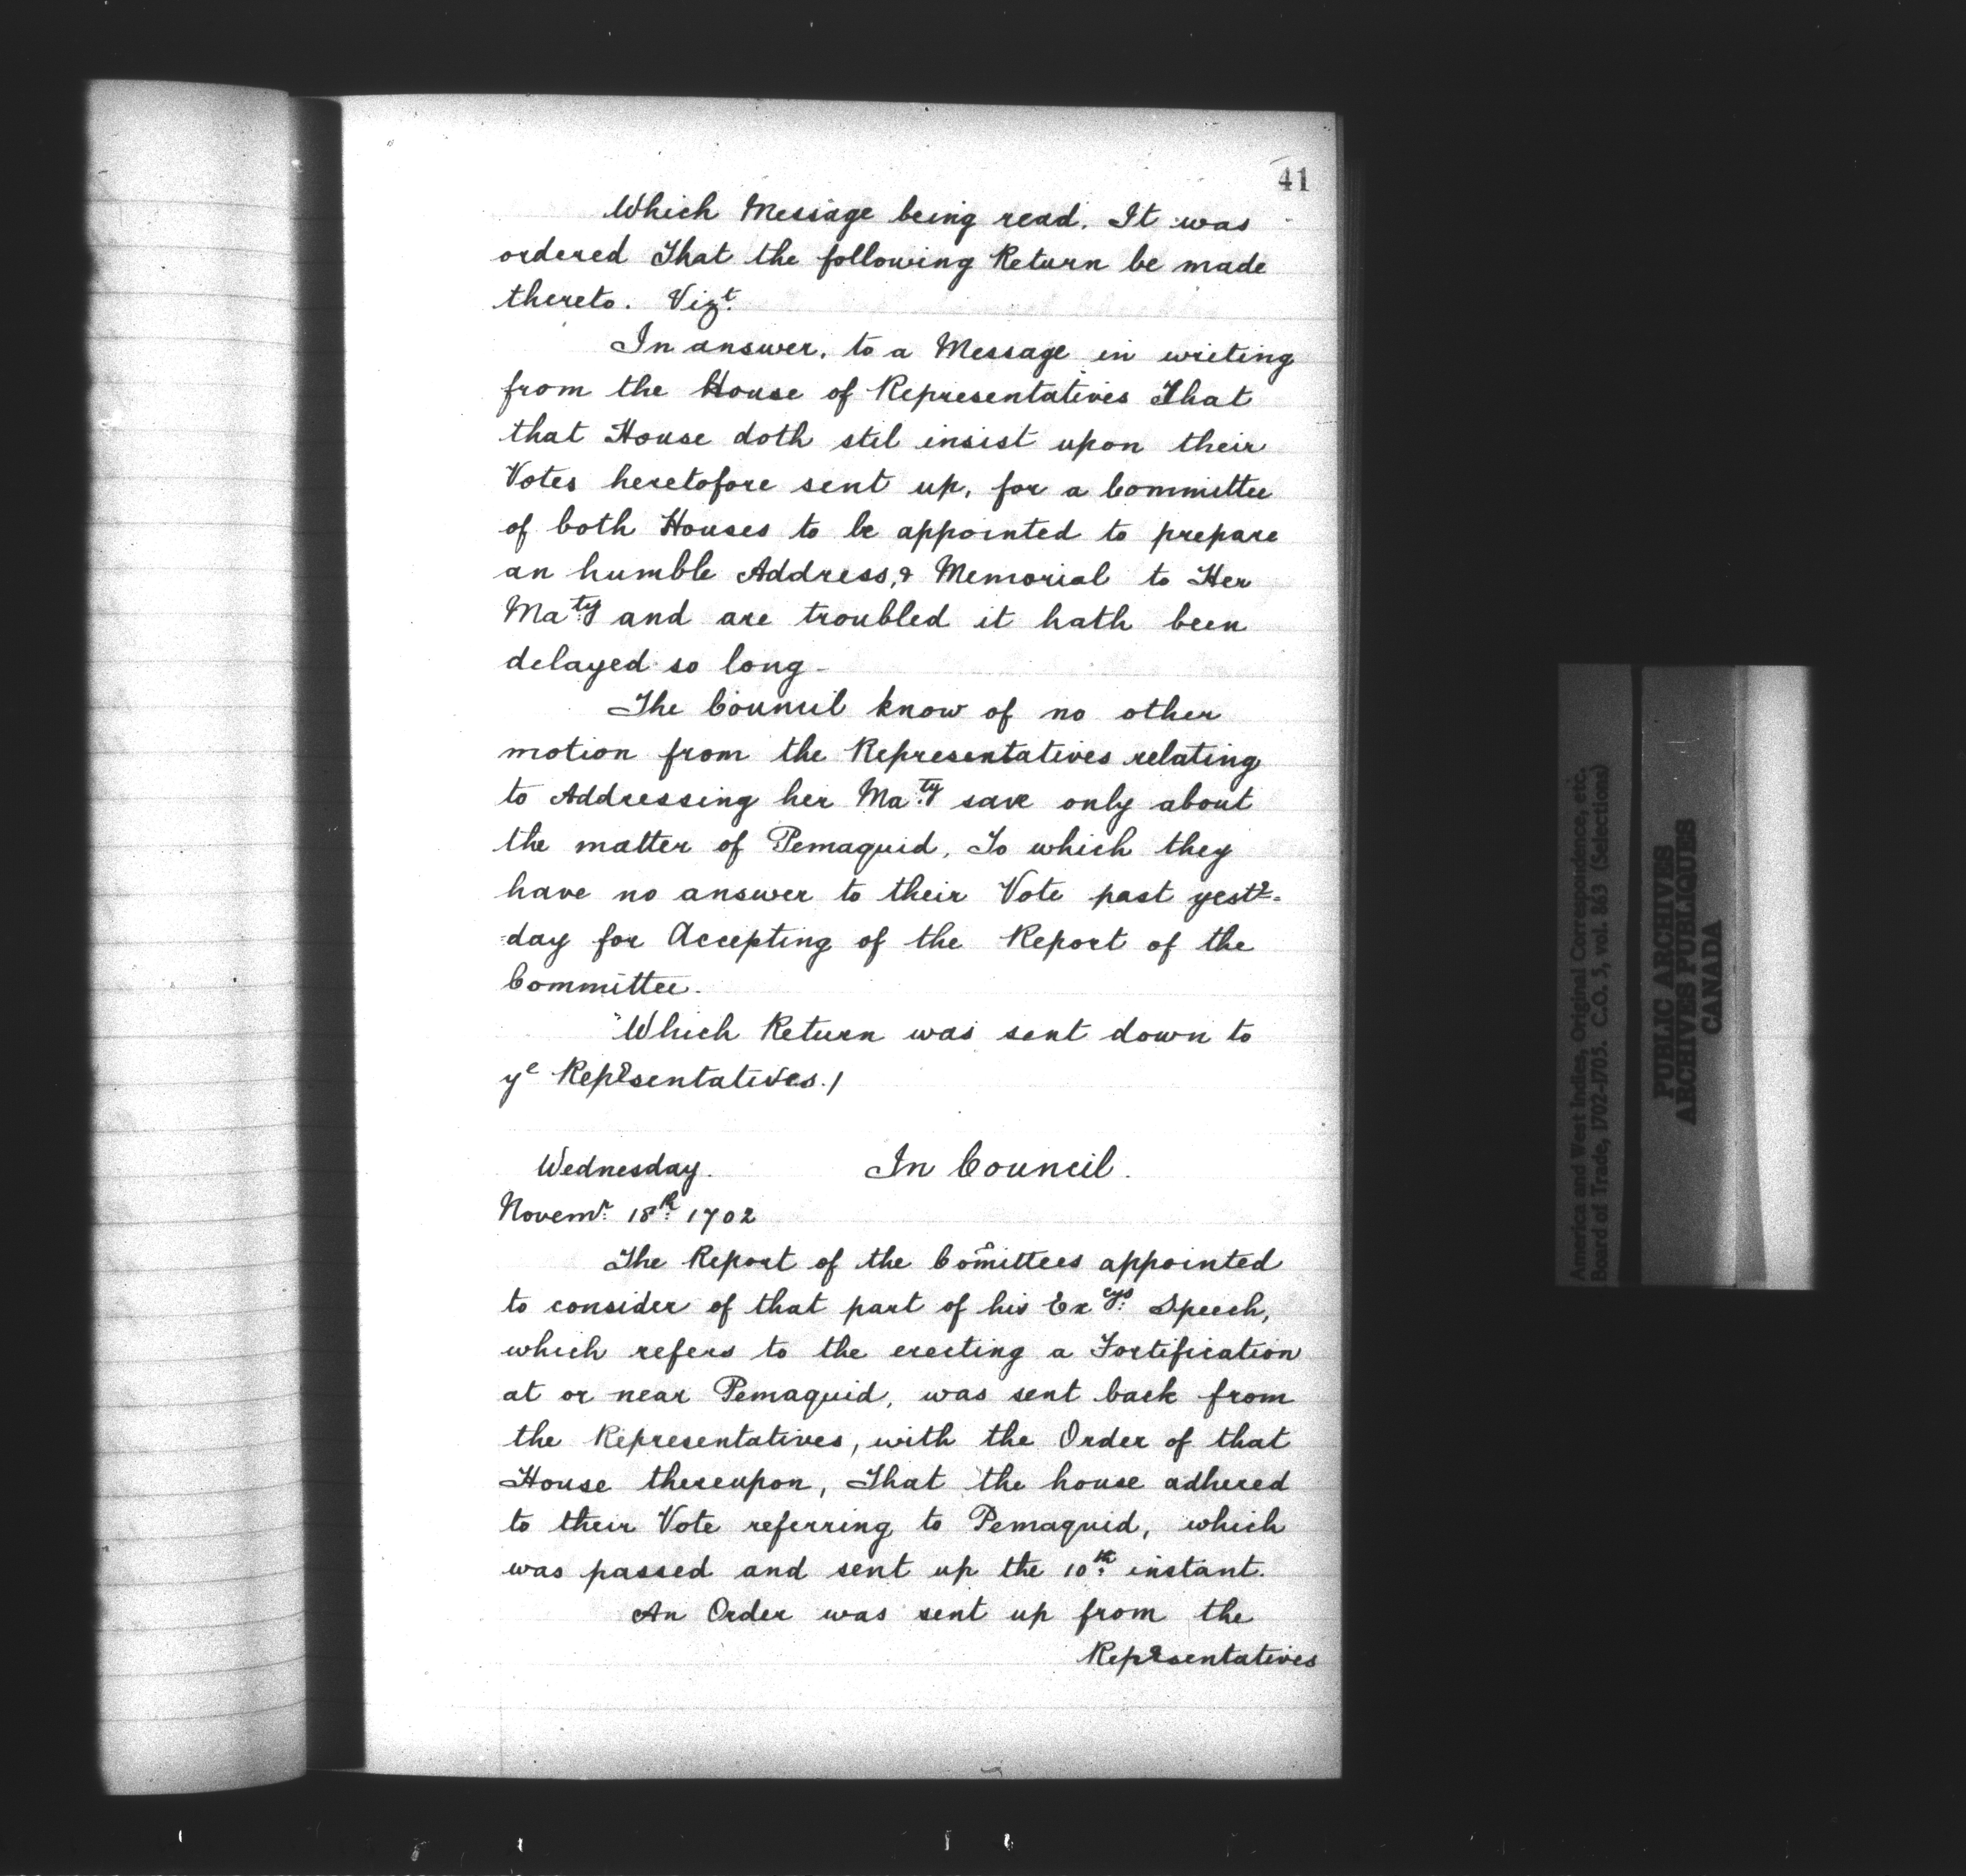 41
Which Message being read. It was
ordered That the following Return be made
thereto. Vizt.
In answer, to a Message in writing
from the House of Representatives That
that House doth stil insist upon their
Votes heretofore sent up, for a Committee
of both Houses to be appointed to prepare
an humble Address, & Memorial to Her
Maty and are troubled it hath been
delayed so long -
The Council know of no other
motion from the Representatives relating
to Addressing her Maty save only about
the matter of Pemaquid, To which they
have no answer to their Vote past yestr-
day for Accepting of the Report of the
Committee.
Which Return was sent down to
ye Representatives./
Wednesday. In Council.
Novemr 18th 1702
The Report of the Comittees appointed
to consider of that part of his Excys Speech,
which refers to the erecting a Fortification
at or near Pemaquid, was sent back from
the Representatives, with the Order of that
House thereupon, That the house adhered
to their Vote referring to Pemaquid, which
was passed and sent up the 10th instant.
An Order was sent up from the
Representatives
America and West Indies, Original Correspondence, etc.
Board of Trade, 1702-1705. C.O. 5, vol. 863 (Selections)
PUBLIC ARCHIVES
ARCHIVES PUBLIQUES
CANADA